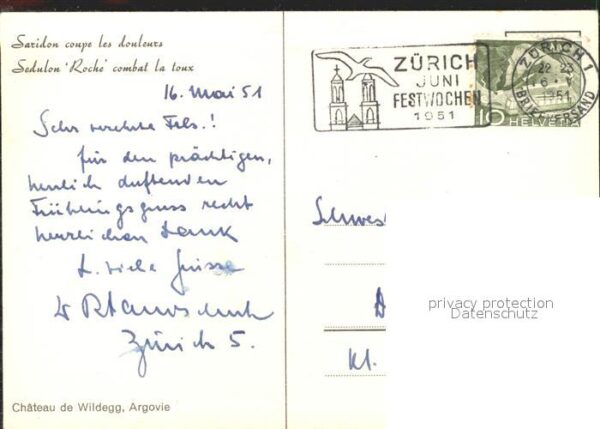 Saridon coupe les douleurs
Sedulon 'Roche' combat la toux
16. Mai 51
Sehr verehrte Frls.!
für den prächtigen,
herrlich duftenden
Frühlingsgruss recht
herzlichen Dank
&. viele Grüsse
Zürich 5.
Château de Wildegg, Argovie
ZÜRICH
JUNI
FESTWOCHEN
1951
ZÜRICH 1
1951
BRIEFVERSAND
10 HELVETIA
Schwes
Kl.
privacy protection
Datenschutz